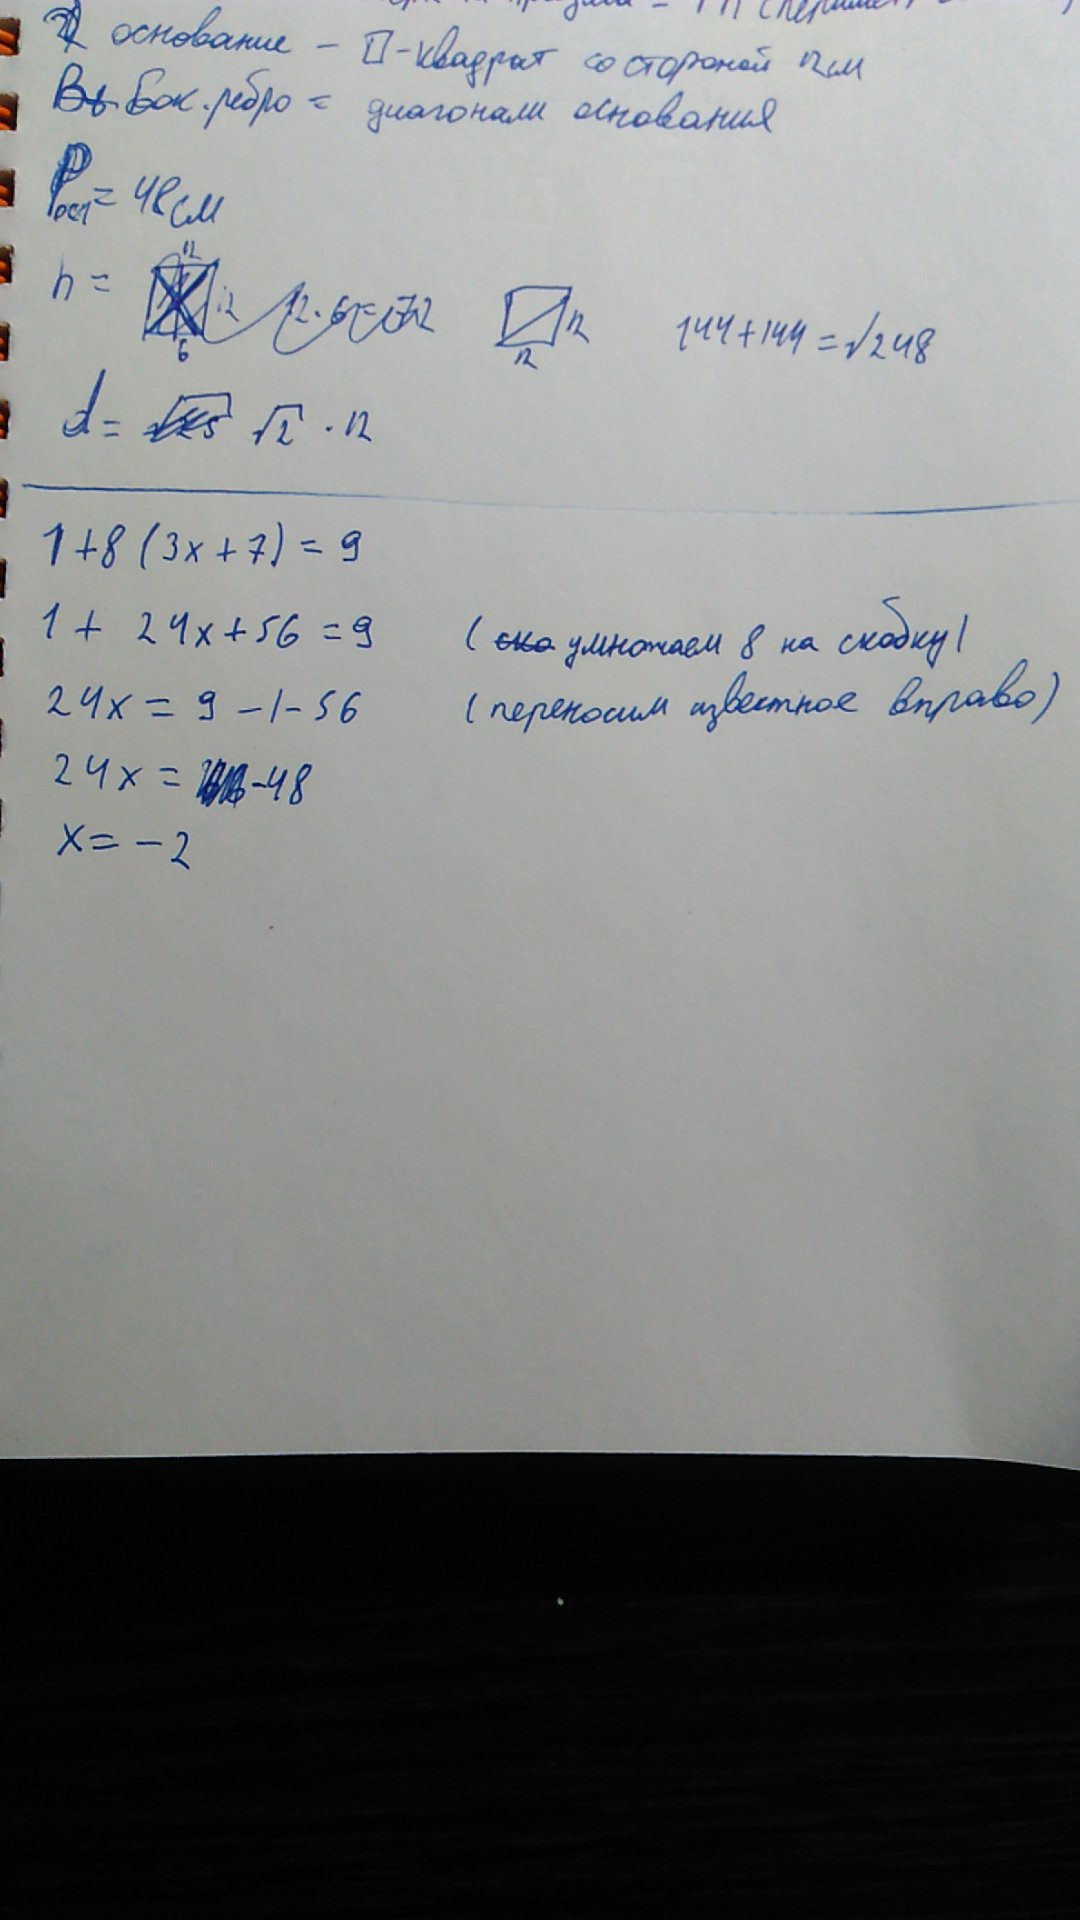 основание - □-квадрат со стороной 12см
Бок. ребро = диагонали основания
Pосн = 48см
h = 12 12 6 12·6=72 12 12 144+144=√248
d = √2 · 12
1+8(3x+7)=9
1+ 24x+56=9 (умножаем 8 на скобку)
24x = 9-1-56 (переносим известное вправо)
24x = -48
x = -2